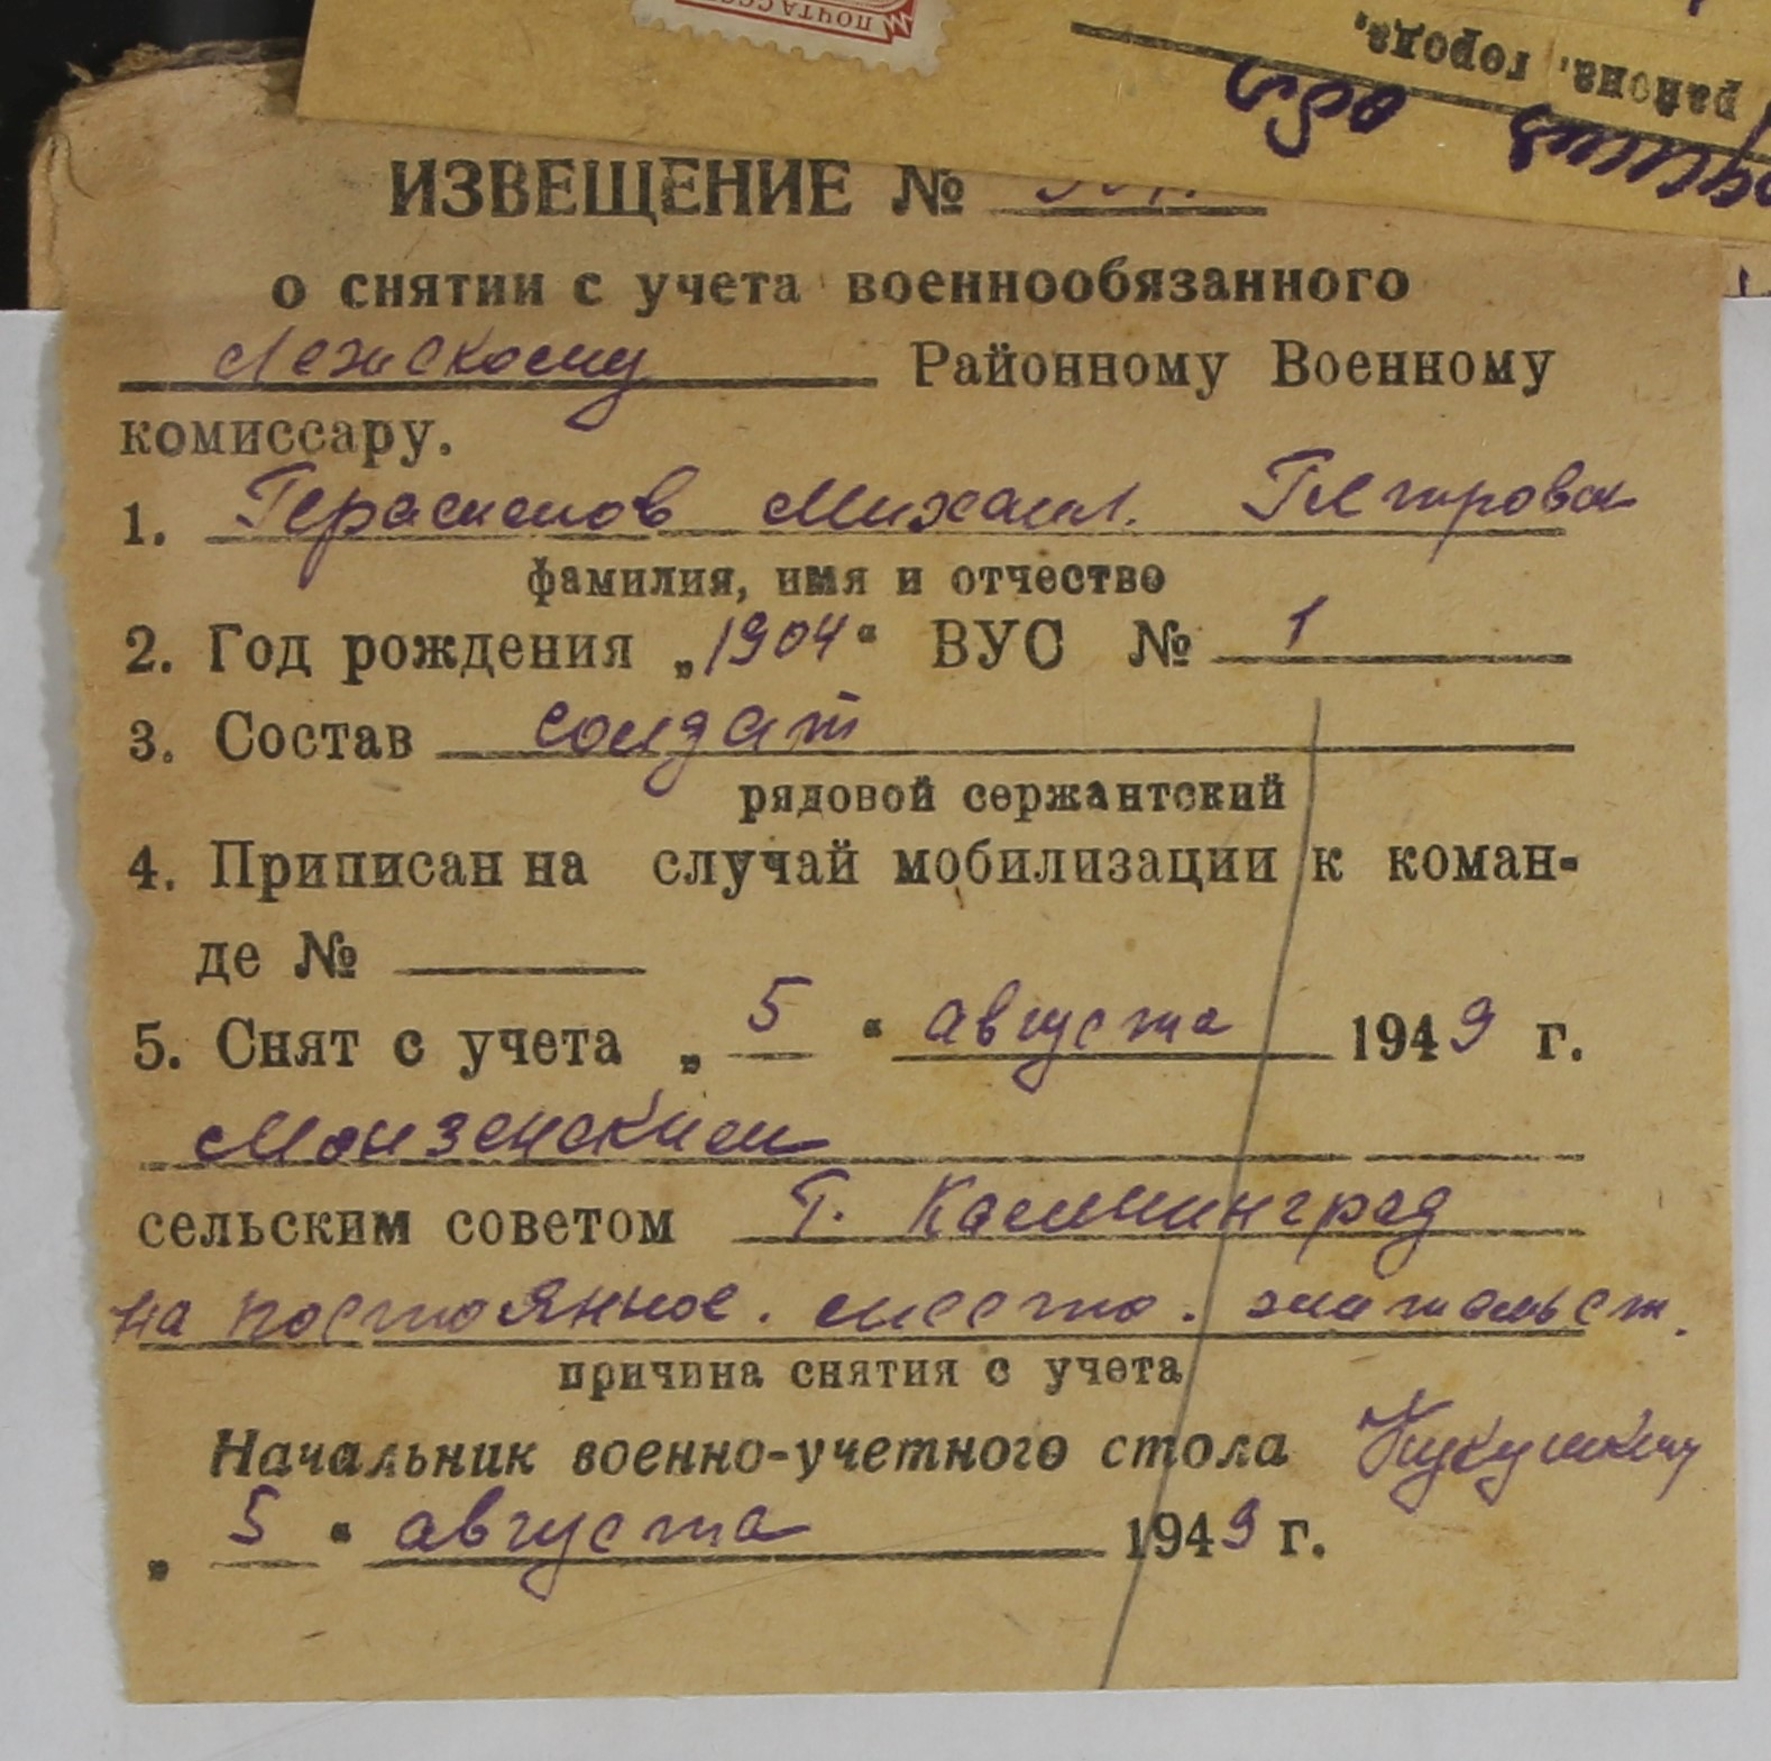 ПОЧТА СССР
района, города.
обл
ИЗВЕЩЕНИЕ №
о снятии с учета военнообязанного
Лежскому Районному Военному
комиссару.
1. Герасимов Михаил. Петрович
фамилия, имя и отчество
2. Год рождения „1904“ ВУС № 1
3. Состав солдат
рядовой сержантский
4. Приписан на случай мобилизации к коман-
де №
5. Снят с учета „5“ августа 1949 г.
Монзенским
сельским советом Г. Калининград
на постоянное. место. жительст.
причина снятия с учета
Начальник военно-учетного стола
„5“ августа 1949 г.